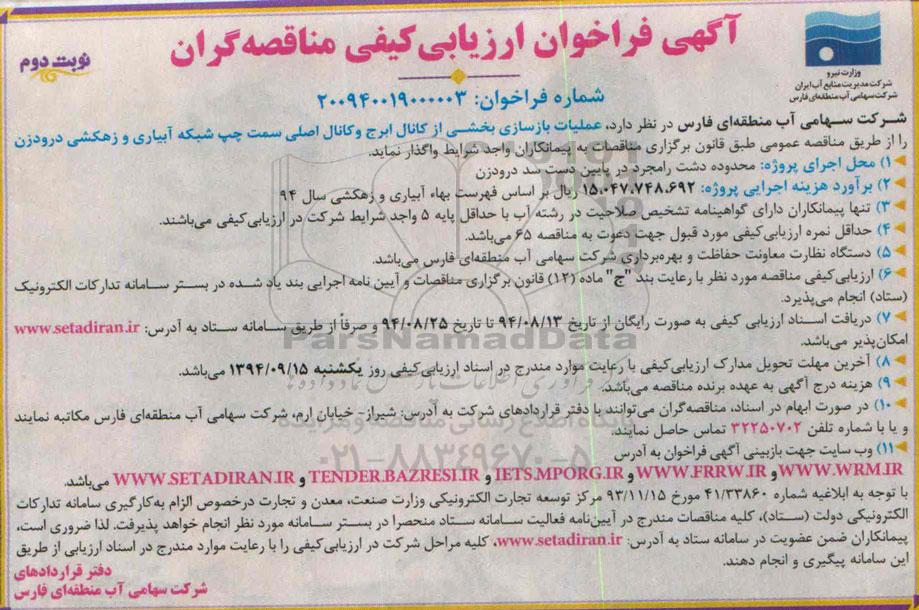 آگهی فراخوان ارزیابی کیفی مناقصه گران
نوبت دوم
وزارت نیرو
شرکت مدیریت منابع آب ایران
شرکت سهامی آب منطقه‌ای فارس
شماره فراخوان: ۲۰۰۹۴۰۰۱۹۰۰۰۰۰۳
شرکت سهامی آب منطقه‌ای فارس در نظر دارد، عملیات بازسازی بخشی از کانال ابرج وکانال اصلی سمت چپ شبکه آبیاری و زهکشی درودزن
را از طریق مناقصه عمومی طبق قانون برگزاری مناقصات به پیمانکاران واجد شرایط واگذار نماید.
۱) محل اجرای پروژه: محدوده دشت رامجرد در پایین دست سد درودزن
۲) برآورد هزینه اجرایی پروژه: ۱۵.۰۴۷.۷۴۸.۶۹۲ ریال بر اساس فهرست بهاء آبیاری و زهکشی سال ۹۴
۳) تنها پیمانکاران دارای گواهینامه تشخیص صلاحیت در رشته آب با حداقل پایه ۵ واجد شرایط شرکت در ارزیابی کیفی می‌باشند.
۴) حداقل نمره ارزیابی کیفی مورد قبول جهت دعوت به مناقصه ۶۵ می‌باشد.
۵) دستگاه نظارت معاونت حفاظت و بهره‌برداری شرکت سهامی آب منطقه‌ای فارس می‌باشد.
۶) ارزیابی کیفی مناقصه مورد نظر با رعایت بند "ج" ماده (۱۲) قانون برگزاری مناقصات و آیین نامه اجرایی بند یاد شده در بستر سامانه تدارکات الکترونیک
(ستاد) انجام می‌پذیرد.
۷) دریافت اسناد ارزیابی کیفی به صورت رایگان از تاریخ ۹۴/۰۸/۱۳ تا تاریخ ۹۴/۰۸/۲۵ و صرفاً از طریق سامانه ستاد به آدرس: www.setadiran.ir
امکان‌پذیر می‌باشد.
۸) آخرین مهلت تحویل مدارک ارزیابی‌کیفی با رعایت موارد مندرج در اسناد ارزیابی‌کیفی روز یکشنبه ۱۳۹۴/۰۹/۱۵ می‌باشد.
۹) هزینه درج آگهی به عهده برنده مناقصه می‌باشد.
۱۰) در صورت ابهام در اسناد، مناقصه‌گران می‌توانند با دفتر قراردادهای شرکت به آدرس: شیراز- خیابان ارم، شرکت سهامی آب منطقه‌ای فارس مکاتبه نمایند
و یا با شماره تلفن ۳۲۲۵۰۷۰۲ تماس حاصل نمایند.
۱۱) وب سایت جهت بازبینی آگهی فراخوان به آدرس
WWW.WRM.IR و WWW.FRRW.IR و IETS.MPORG.IR و TENDER.BAZRESI.IR و WWW.SETADIRAN.IR می‌باشد.
با توجه به ابلاغیه شماره ۴۱/۳۳۸۶۰ مورخ ۹۳/۱۱/۱۵ مرکز توسعه تجارت الکترونیکی وزارت صنعت، معدن و تجارت درخصوص الزام به‌کارگیری سامانه تدارکات
الکترونیکی دولت (ستاد)، کلیه مناقصات مندرج در آیین‌نامه فعالیت سامانه ستاد منحصرا در بستر سامانه مورد نظر انجام خواهد پذیرفت. لذا ضروری است،
پیمانکاران ضمن عضویت در سامانه ستاد به آدرس: www.setadiran.ir، کلیه مراحل شرکت در ارزیابی‌کیفی را با رعایت موارد مندرج در اسناد ارزیابی از طریق
این سامانه پیگیری و انجام دهند.
دفتر قراردادهای
شرکت سهامی آب منطقه‌ای فارس
ParsNamadData
۰۲۱-۸۸۳۴۹۶۷۰-۵